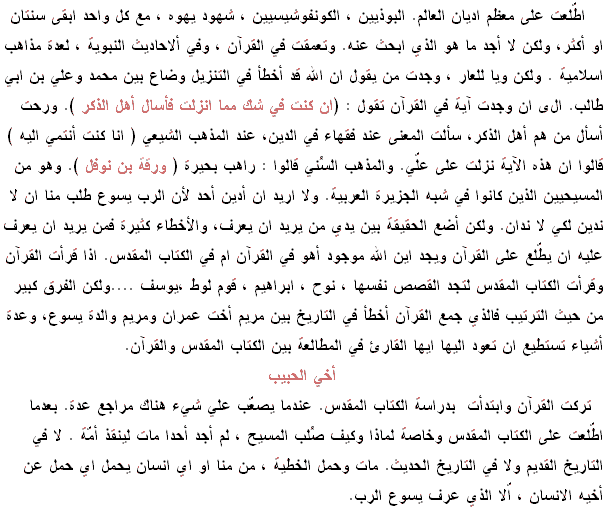 اطّلعت على معظم اديان العالم. البوذيين ، الكونفوشيسيين ، شهود يهوه ، مع كل واحد ابقى سنتان
او أكثر، ولكن لا أجد ما هو الذي ابحث عنه. وتعمقت في القرآن ، وفي ألاحاديث النبوية ، لعدة مذاهب
اسلامية . ولكن ويا للعار ، وجدت من يقول ان الله قد أخطأ في التنزيل وضاع بين محمد وعلي بن ابي
طالب. الى ان وجدت آية في القرآن تقول : (ان كنت في شك مما انزلت فأسال أهل الذكر ). ورحت
أسأل من هم أهل الذكر، سألت المعنى عند فقهاء في الدين، عند المذهب الشيعي ( انا كنت أنتمي اليه )
قالوا ان هذه الآية نزلت على علّي. والمذهب السُني قالوا : راهب بحيرة ( ورقة بن نوفل ). وهو من
المسيحيين الذين كانوا في شبه الجزيرة العربية. ولا اريد ان أدين أحد لأن الرب يسوع طلب منا ان لا
ندين لكي لا ندان. ولكن أضع الحقيقة بين يدي من يريد ان يعرف، والأخطاء كثيرة فمن يريد ان يعرف
عليه ان يطّلع على القرآن ويجد اين الله موجود أهو في القرآن ام في الكتاب المقدس. اذا قرأت القرآن
وقرأت الكتاب المقدس لتجد القصص نفسها ، نوح ، ابراهيم ، قوم لوط ،يوسف ....ولكن الفرق كبير
من حيث الترتيب فالذي جمع القرآن أخطأ في التاريخ بين مريم أخت عمران ومريم والدة يسوع، وعدة
أشياء تستطيع ان تعود اليها ايها القارئ في المطالعة بين الكتاب المقدس والقرآن.
أخي الحبيب
تركت القرآن وابتدأت بدراسة الكتاب المقدس. عندما يصعّب علي شيء هناك مراجع عدة. بعدما
اطّلعت على الكتاب المقدس وخاصة لماذا وكيف صُلب المسيح ، لم أجد أحدا مات لينقذ أمّة . لا في
التاريخ القديم ولا في التاريخ الحديث. مات وحمل الخطية ، من منا او اي انسان يحمل اي حمل عن
أخيه الانسان ، ألا الذي عرف يسوع الرب.